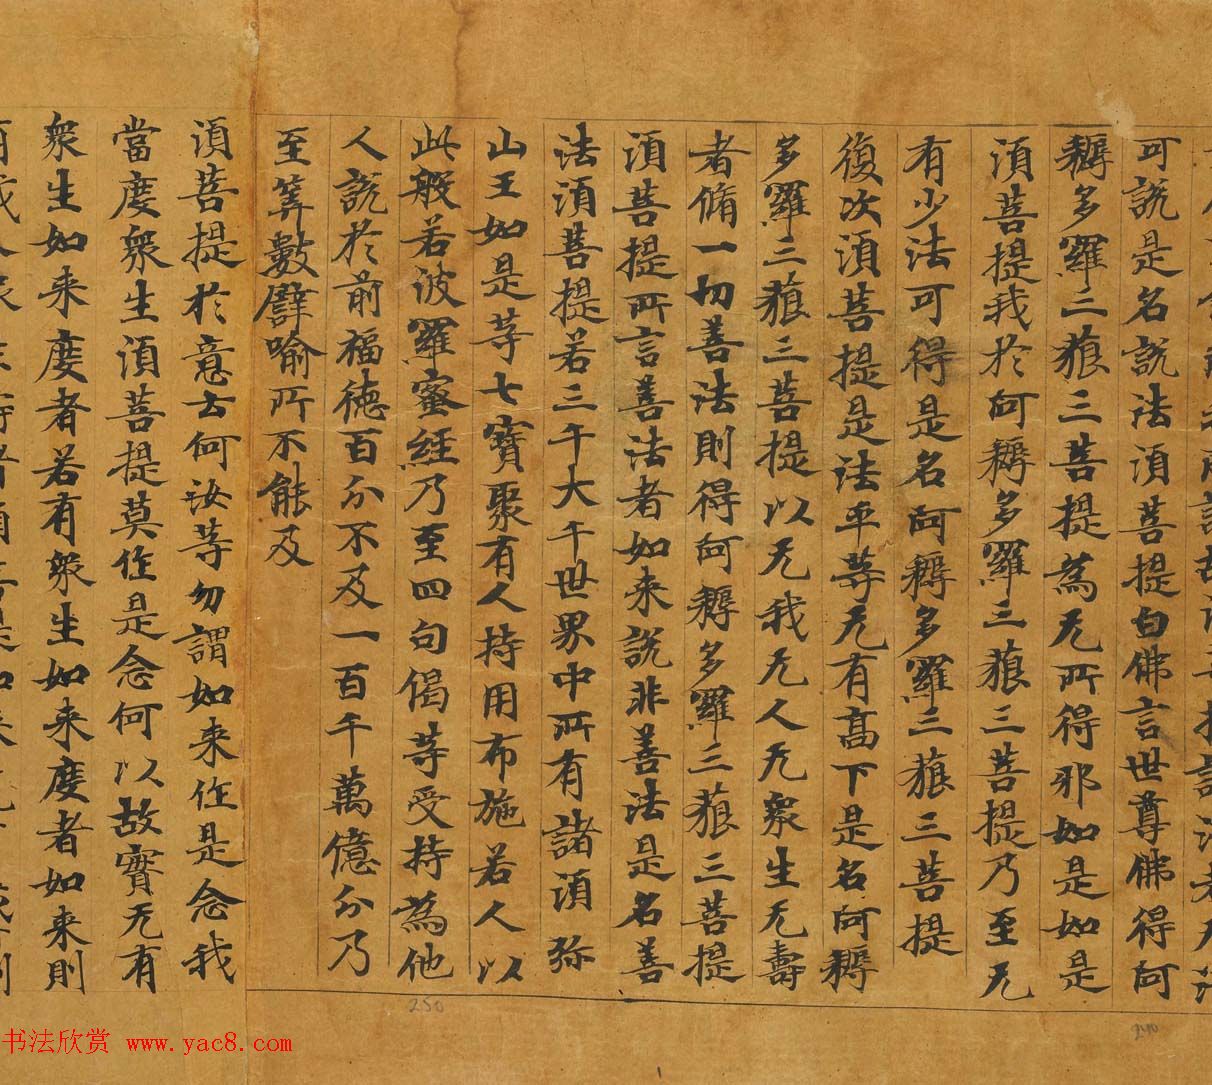 可說是名說法須菩提白佛言世尊佛得阿
耨多羅三藐三菩提為无所得邪如是如是
須菩提我於阿耨多羅三藐三菩提乃至无
有少法可得是名阿耨多羅三藐三菩提
復次須菩提是法平等无有高下是名阿耨
多羅三藐三菩提以无我无人无衆生无壽
者脩一切善法則得阿耨多羅三藐三菩提
須菩提所言善法者如来說非善法是名善
法須菩提若三千大千世界中所有諸須弥
山王如是等七寶聚有人持用布施若人以
此般若波羅蜜經乃至四句偈等受持為他
人說於前福德百分不及一百千萬億分乃
至筭數譬喻所不能及
須菩提於意云何汝等勿謂如来作是念我
當度衆生須菩提莫作是念何以故實无有
衆生如来度者若有衆生如来度者如来則
250
240
书法欣赏 www.yac8.com